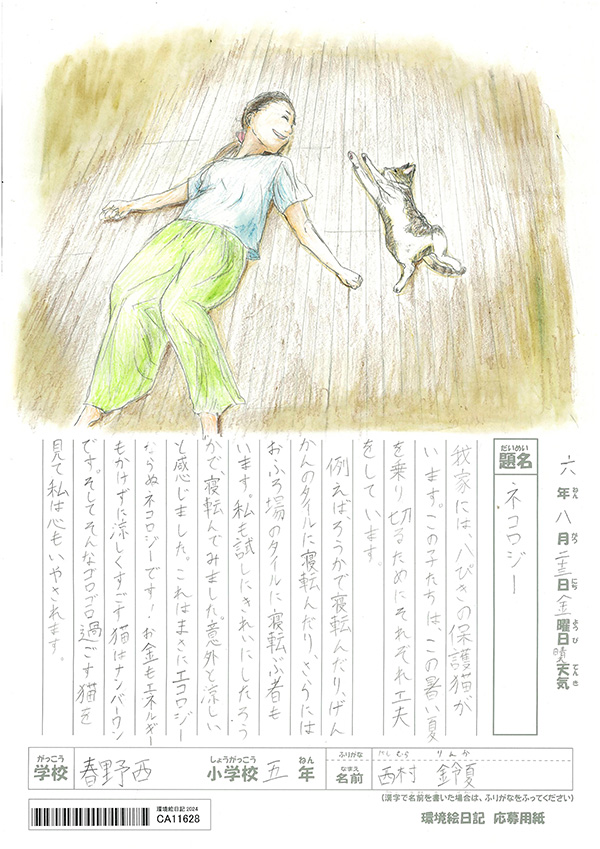 六年八月二十三日金曜日晴天気
ねん がつ にち ようび てんき
だいめい
題名 ネコロジー
我家には、八ぴきの保護猫が
います。この子たちは、この暑い夏
を乗り切るためにそれぞれ工夫
をしています。
例えば、ろうかで寝転んだり、げん
かんのタイルに寝転んだり、さらには
おふろ場のタイルに寝転ぶ者も
います。私も試しにきれいにしたろう
かで、寝転んでみました。意外と涼しい
と感じました。これはまさにエコロジー
ならぬネコロジーです！お金もエネルギー
もかけずに涼しくすごす猫はナンバーワン
です。そしてそんなゴロゴロ過ごす猫を
見て私は心もいやされます。
がっこう しょうがっこう ねん
学校 春野西 小学校 五年
ふりがな にしむら りんか
なまえ
名前 西村 鈴夏
(漢字で名前を書いた場合は、ふりがなをふってください)
環境絵日記2024
CA11628
環境絵日記 応募用紙